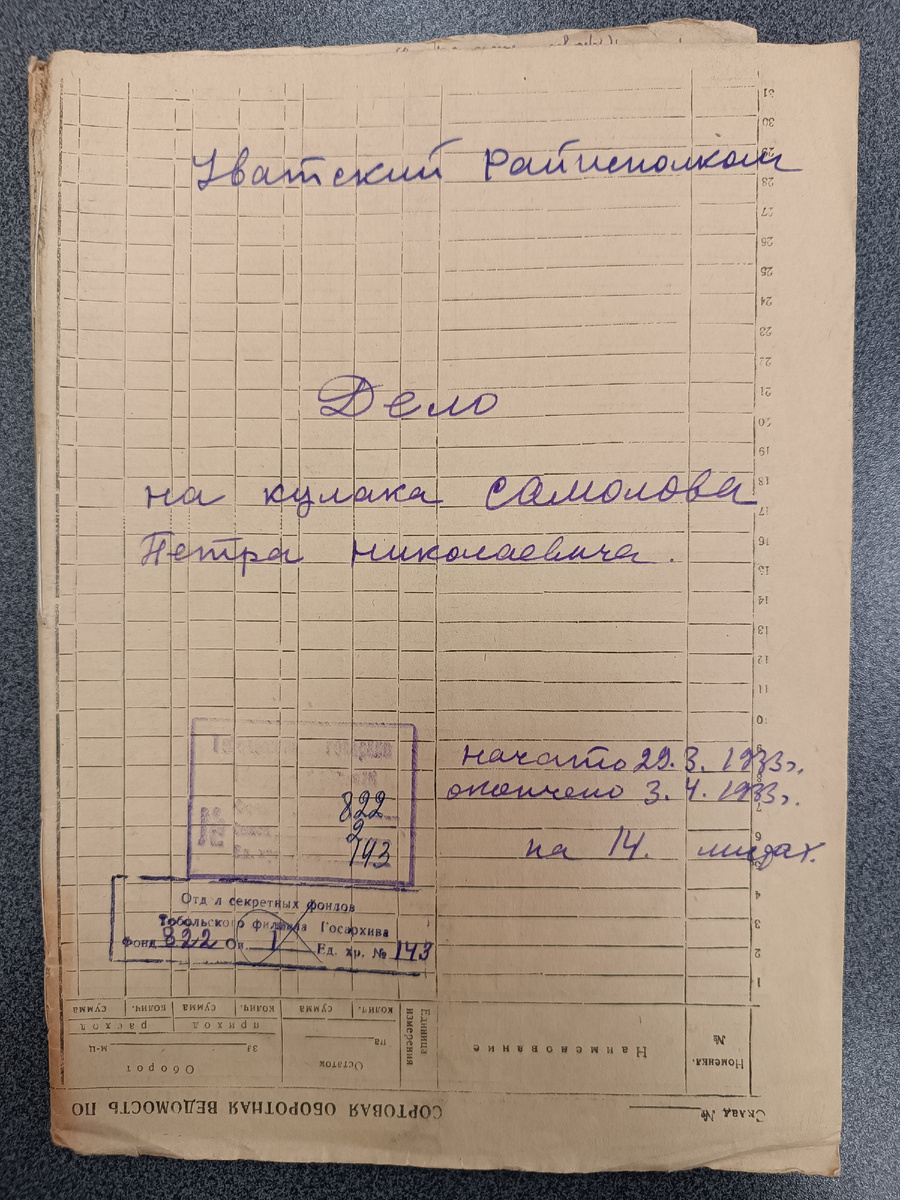 Уватский Райисполком
Дело
на кулака Самолова
Петра Николаевича.
начато 29. 3. 1933г.
окончено 3. 4. 1933г.
на 14. листах.
822
2
143
Отд л секретных фондов
Тобольского филиала Госархива
Фонд 822 Оп. 1 Ед. хр. № 143
31
30
29
28
27
26
25
24
23
22
21
20
19
18
17
16
15
14
13
12
11
10
9
8
7
6
5
4
3
2
1
СОРТОВАЯ ОБОРОТНАЯ ВЕДОМОСТЬ ПО
Склад №
Номенкл. №
Наименование
Единица измерения
Остаток
на
колич. сумма
Оборот
за м-ц
приход расход
колич. сумма колич. сумма